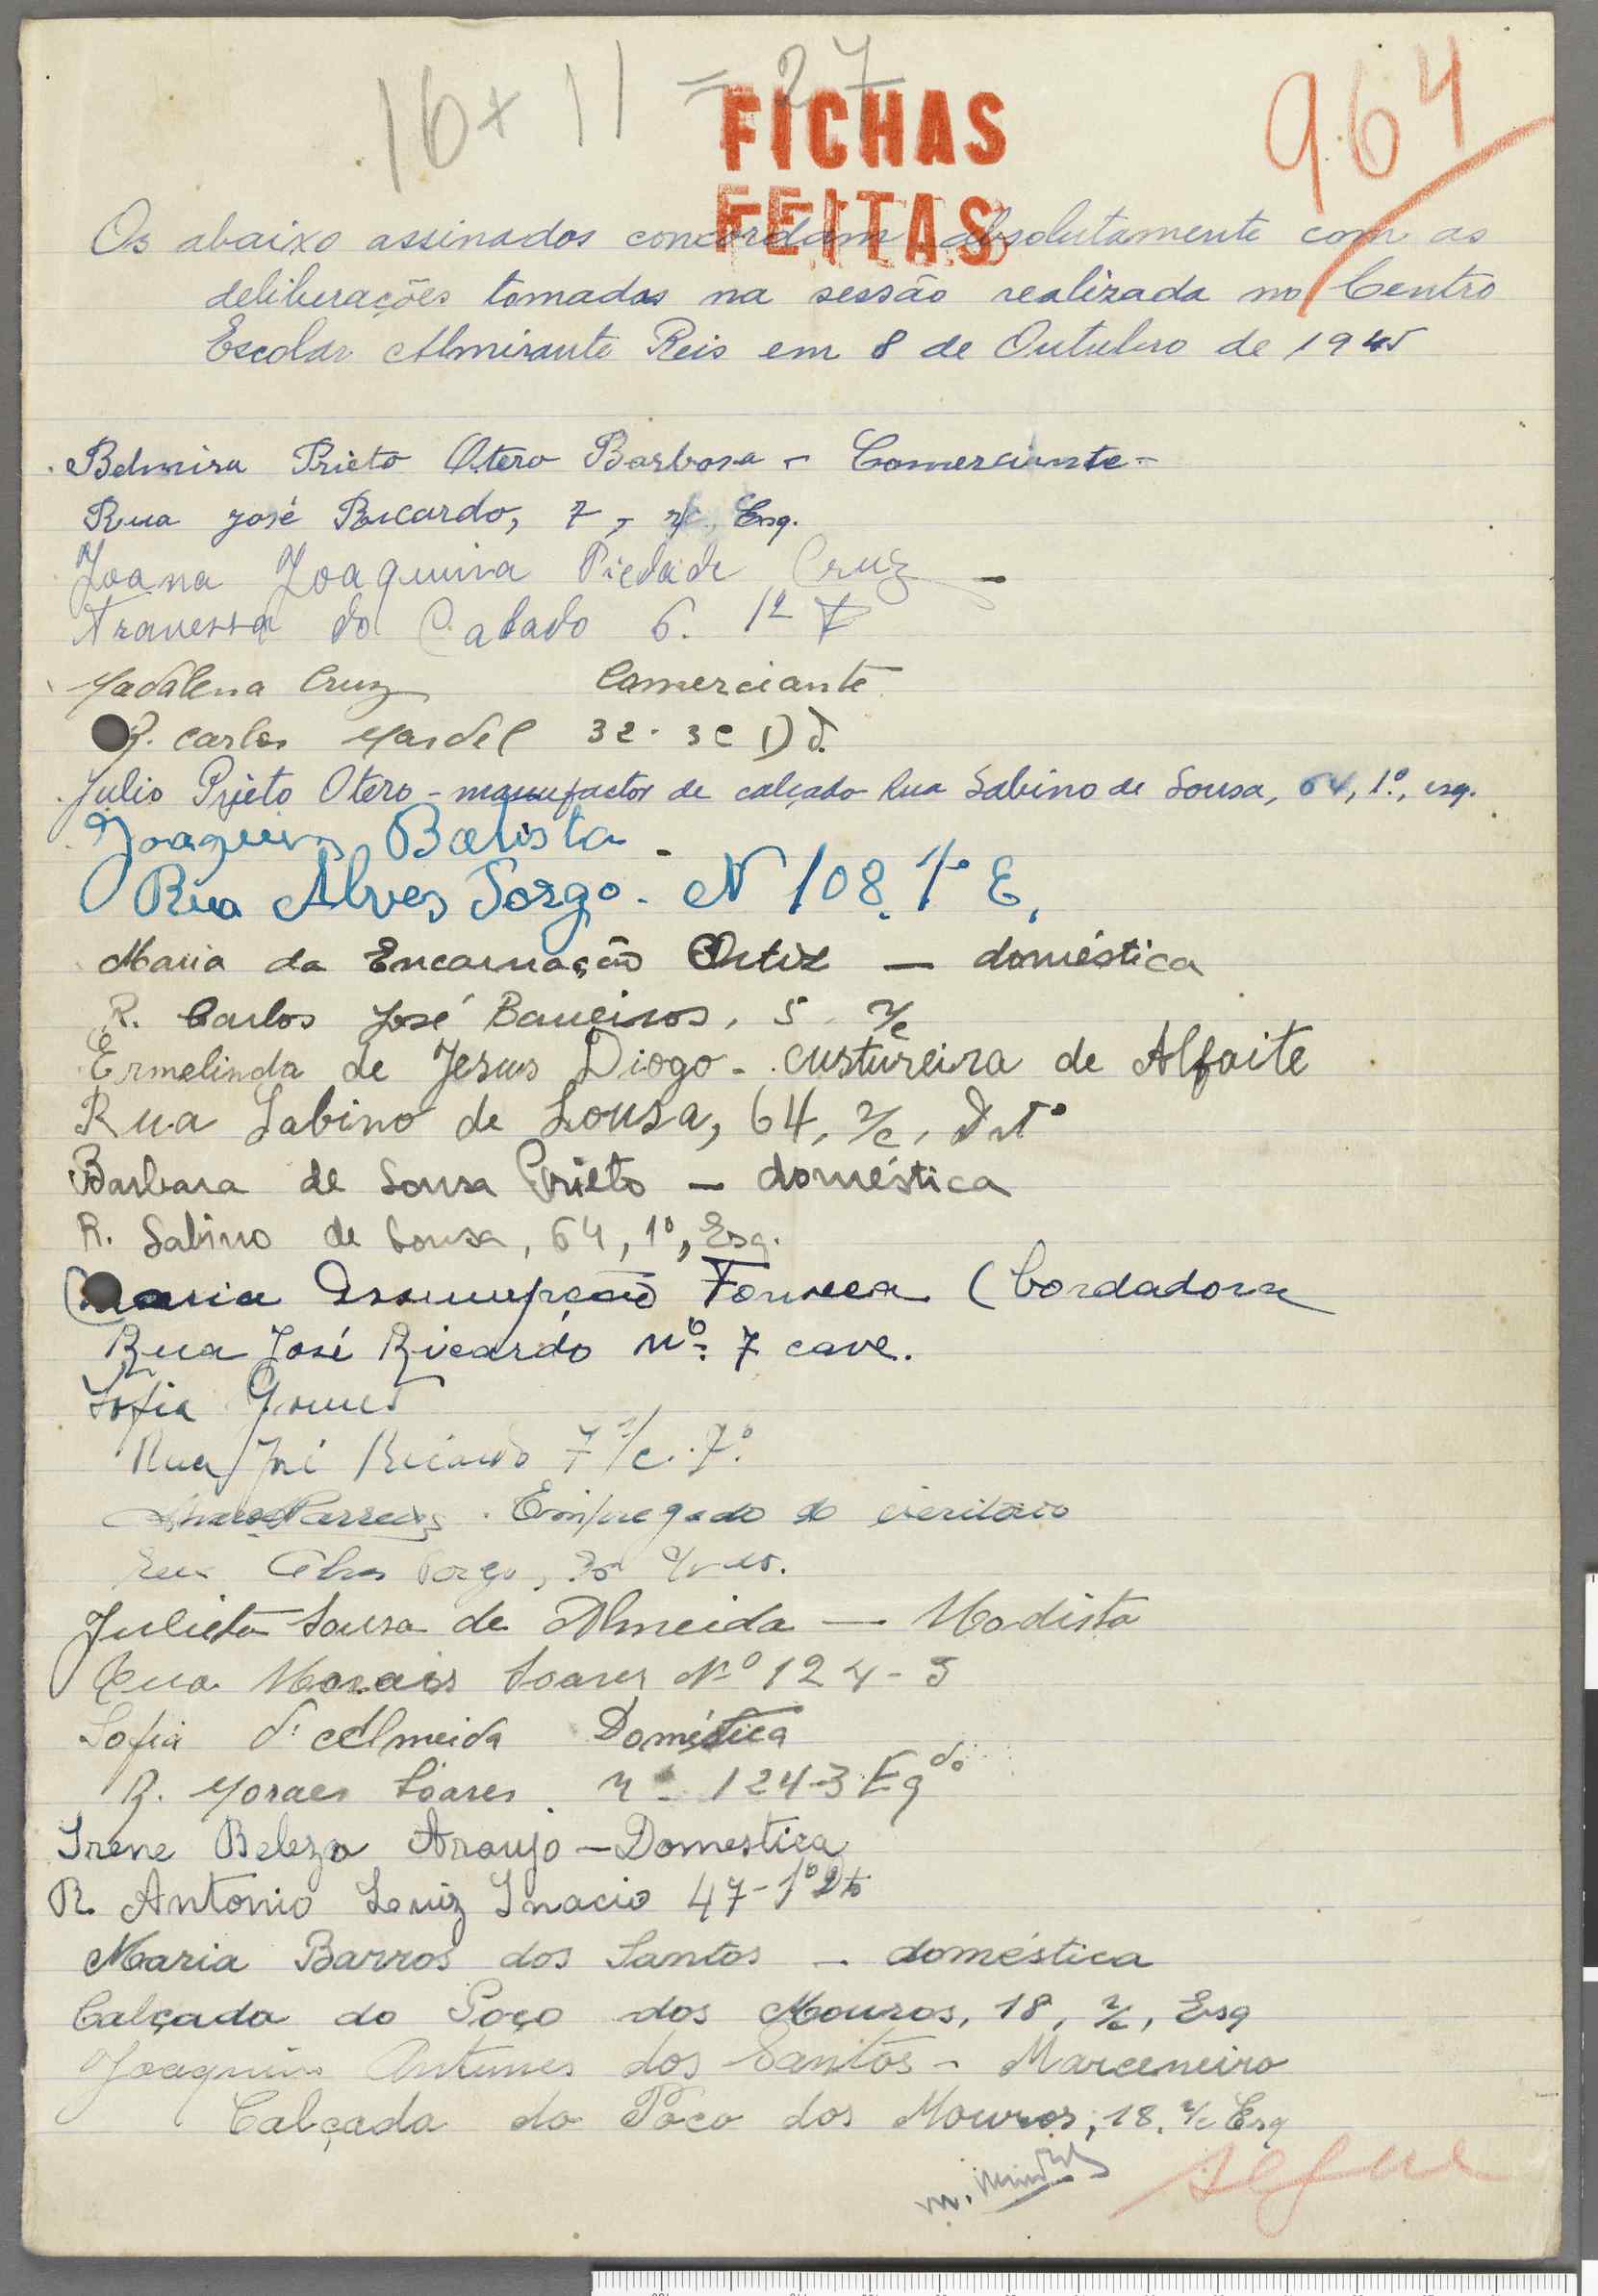 16 + 11 = 27
964
FICHAS
FEITAS
Os abaixo assinados concordam absolutamente com as
deliberações tomadas na sessão realizada no Centro
Escolar Almirante Reis em 8 de Outubro de 1945
Belmira Prieto Otero Barbosa - Comerciante -
Rua José Ricardo, 7, r/c, Esq.
Joana Joaquina Piedade Cruz
Travessa do Calado 6. 1º
Madalena Cruz Comerciante
R. Carlos Mardel 32. 3º D.
Julio Prieto Otero - manufactor de calçado Rua Sabino de Sousa, 64, 1º, esq.
Joaquim Batista
Rua Alves Torgo. N 108. 1º E.
Maria da Encarnação Ortiz — doméstica
R. Carlos José Barreiros, 5 r/c
Ermelinda de Jesus Diogo - custureira de Alfaite
Rua Sabino de Sousa, 64, r/c, Drtº
Barbara de Sousa Prieto — doméstica
R. Sabino de Sousa, 64, 1º, Esq.
Maria Assumpção Fonseca (Bordadora
Rua José Ricardo nº 7 cave.
Sofia Gomes
Rua José Ricardo 7 r/c
Empregado de escritório
Rua Alves Torgo,
Julieta Sousa de Almeida — Modista
Rua Morais Soares Nº 124-3
Sofia d'Almeida Doméstica
R. Moraes Soares n 124-3 Eqdo
Irene Beleza Araujo - Domestica
R. Antonio Luiz Inacio 47-1º Dto
Maria Barros dos Santos - doméstica
Calçada do Poço dos Mouros, 18, r/c, Esq
Joaquim Antunes dos Santos - Marceneiro
Calçada do Poço dos Mouros, 18, r/c Esq
segue